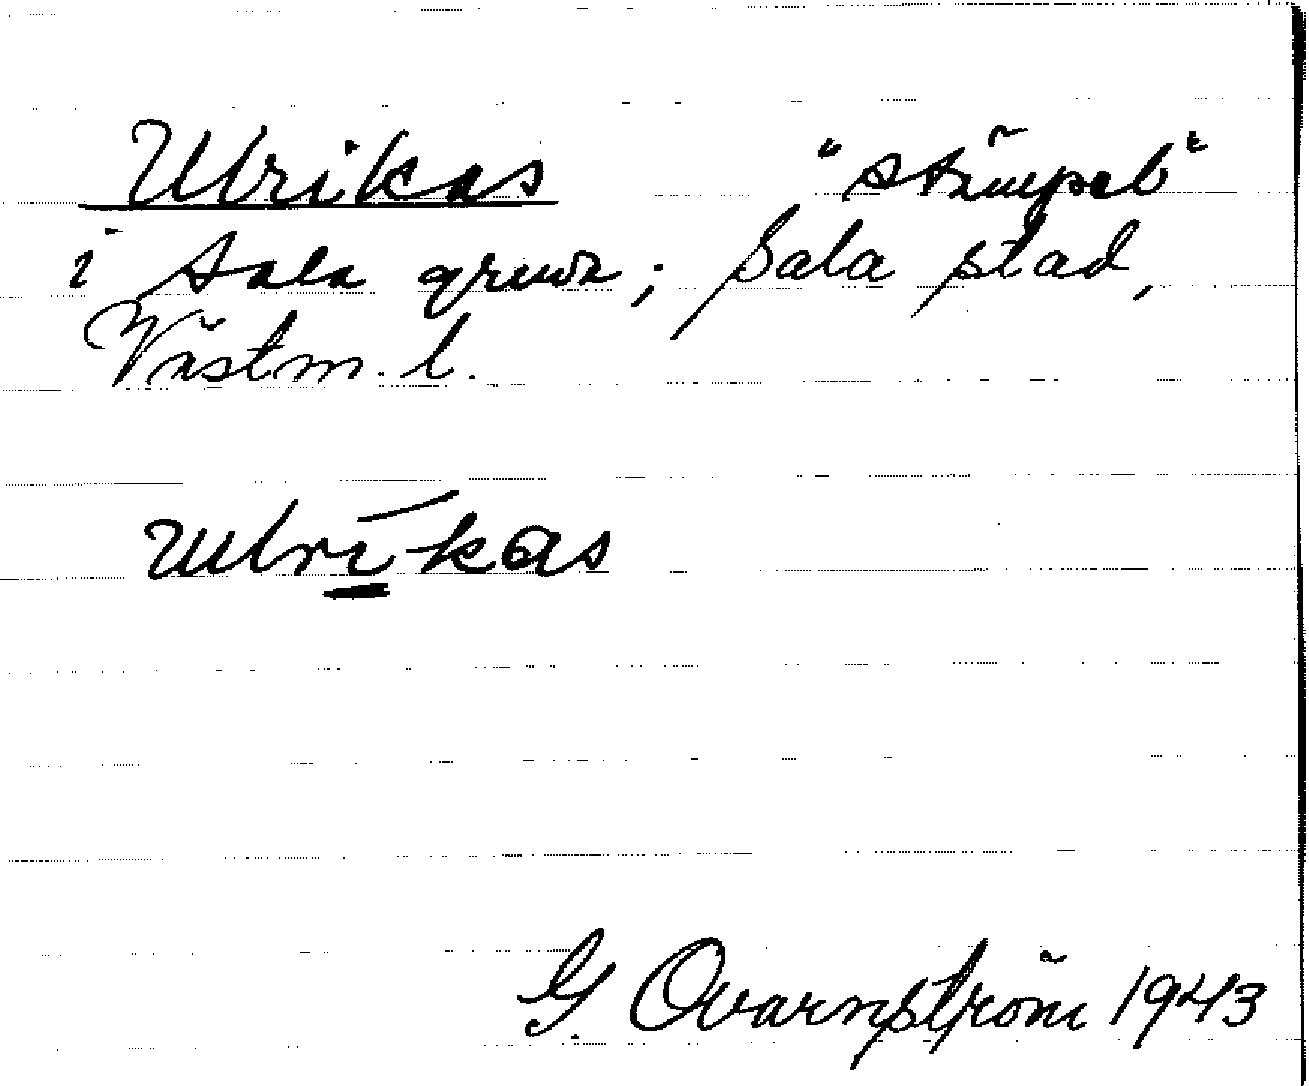 Ulrikas "stämpel"
i Sala gruva; Sala stad,
Västm. l.
ulrikas
G. Qvarnström 1943